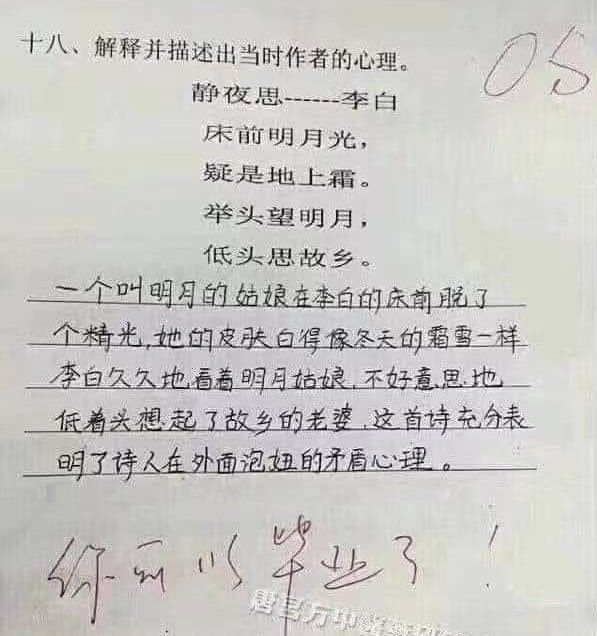 十八、解释并描述出当时作者的心理。
05
静夜思------李白
床前明月光，
疑是地上霜。
举头望明月，
低头思故乡。
一个叫明月的姑娘在李白的床前脱了
个精光，她的皮肤白得像冬天的霜雪一样
李白久久地看着明月姑娘，不好意思地
低着头想起了故乡的老婆，这首诗充分表
明了诗人在外面泡妞的矛盾心理。
你可以毕业了！